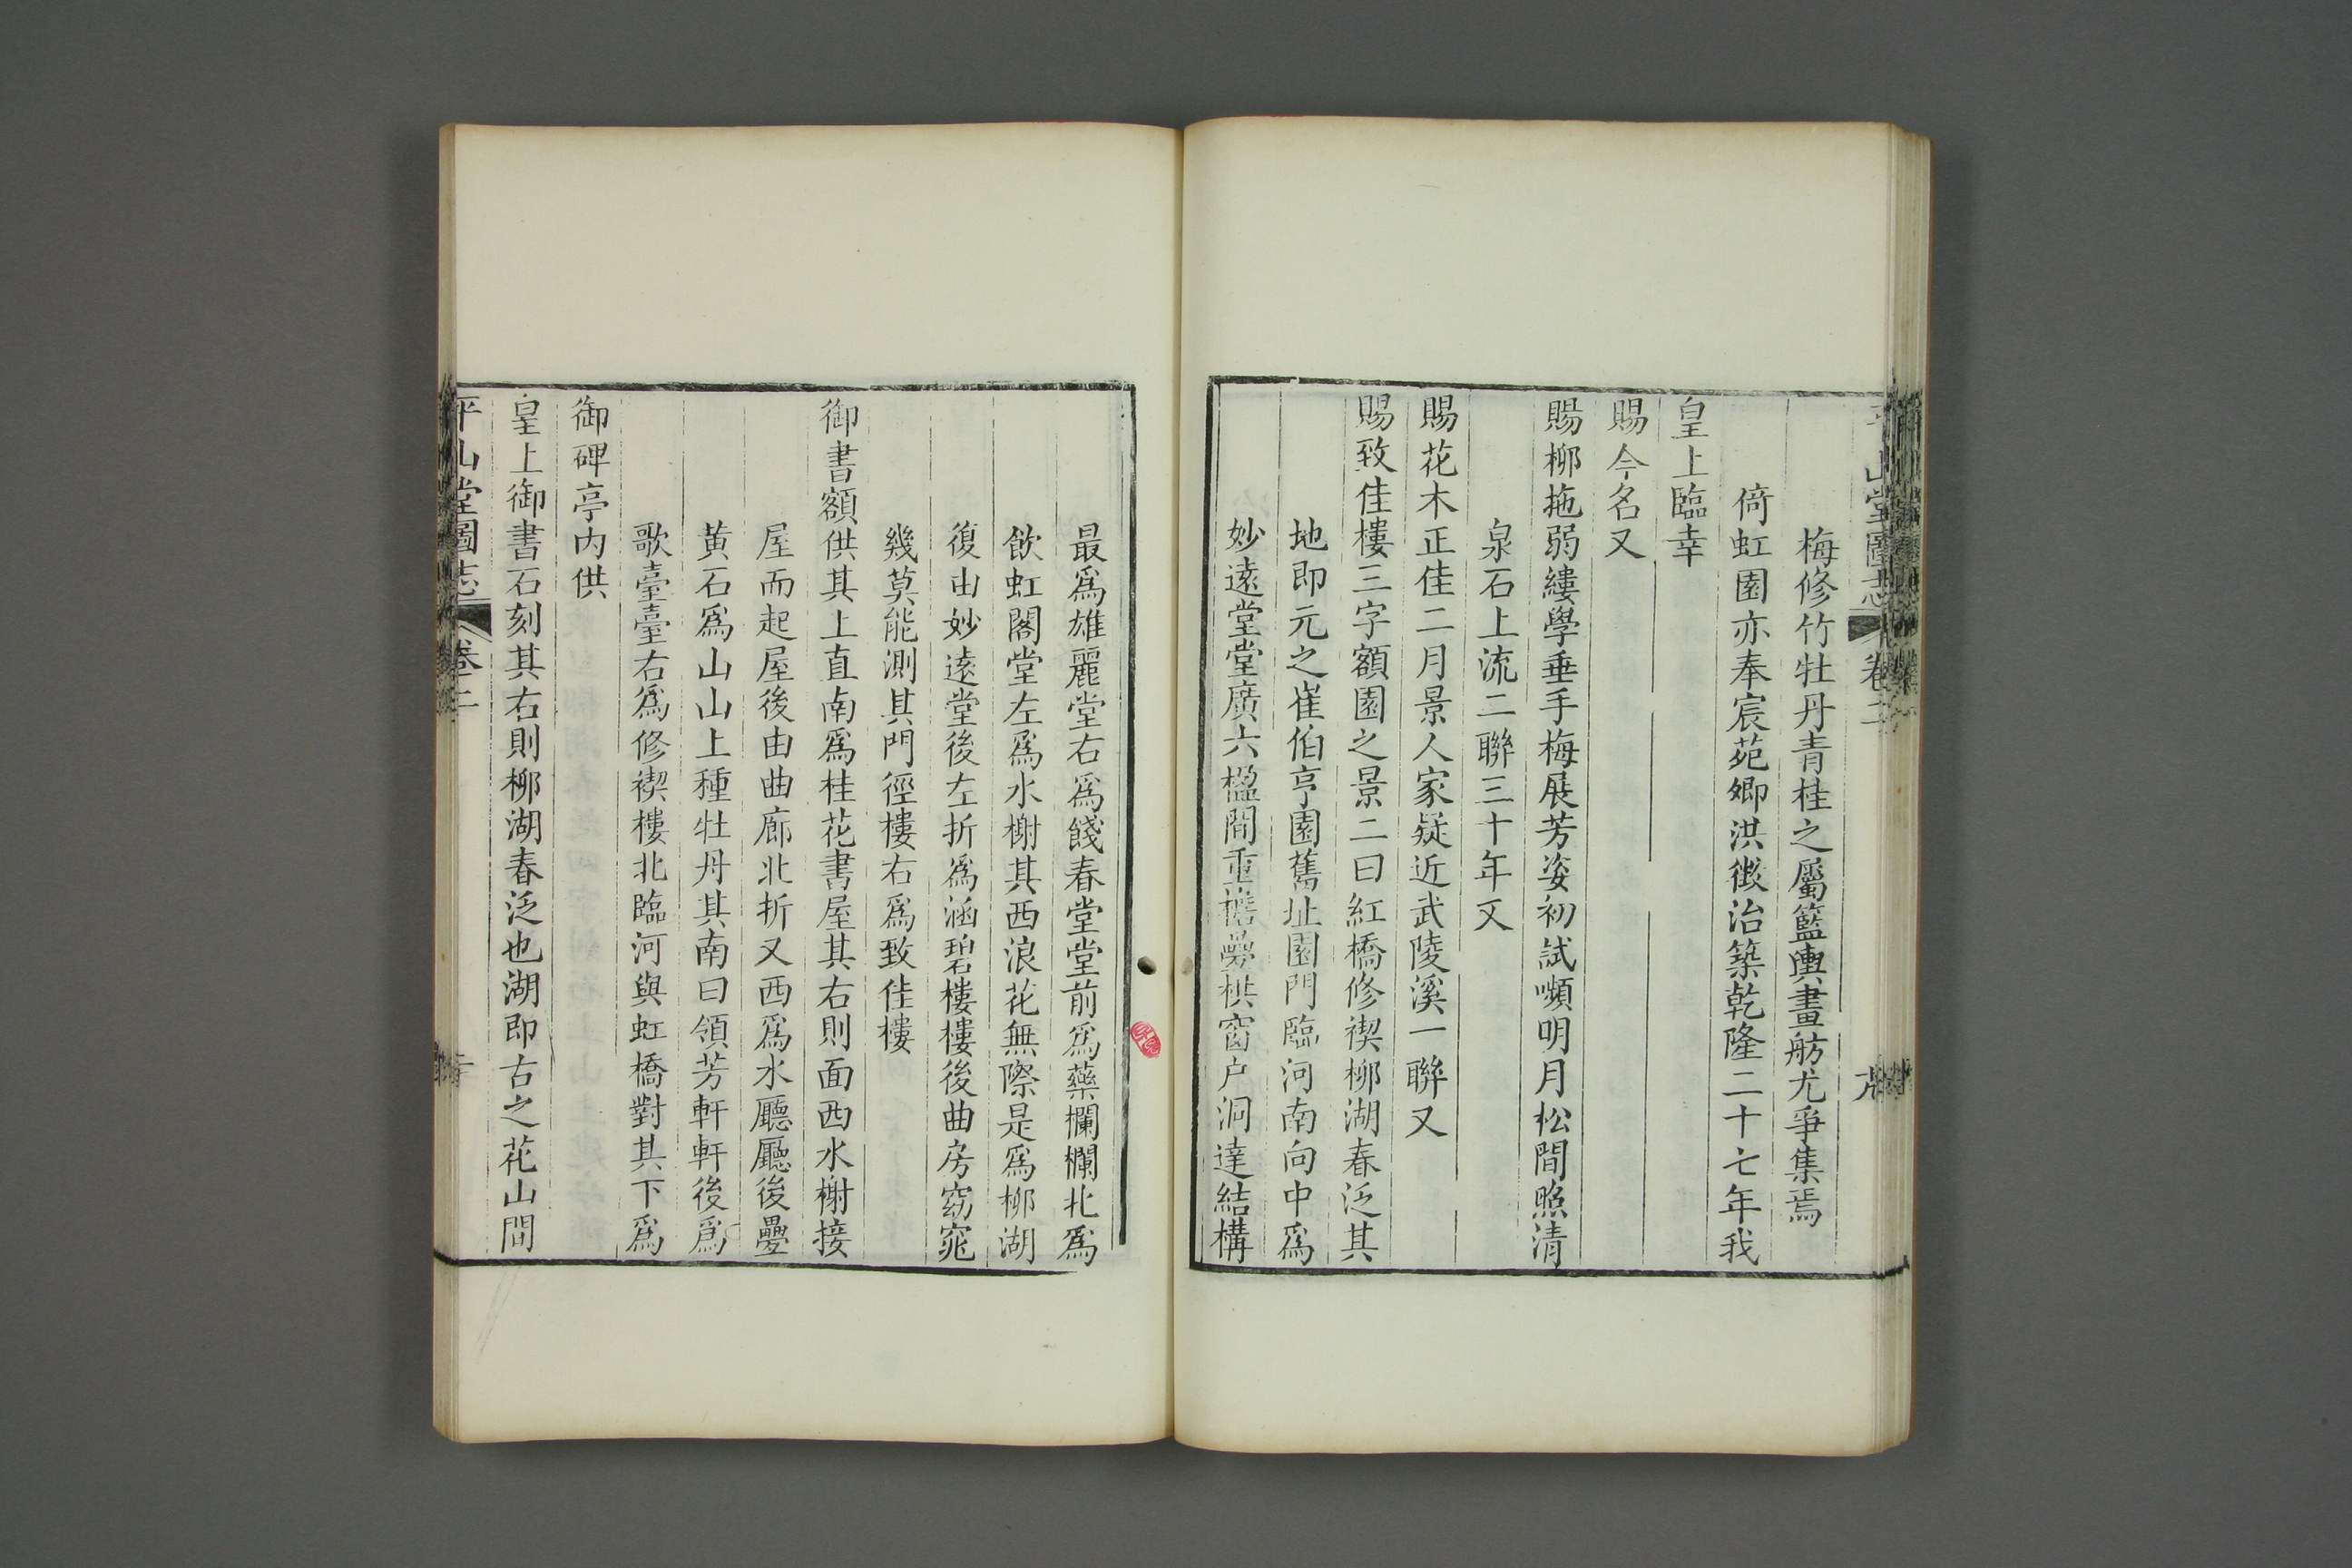 平山堂圖志 卷二 九
梅修竹牡丹青桂之屬籃輿畫舫尤爭集焉
倚虹園亦奉宸苑卿洪徵治築乾隆二十七年我
皇上臨幸
賜今名又
賜柳拖弱縷學垂手梅展芳姿初試嚬明月松間照清
泉石上流二聯三十年又
賜花木正佳二月景人家疑近武陵溪一聯又
賜致佳樓三字額園之景二曰紅橋修禊柳湖春泛其
地即元之崔伯亨園舊址園門臨河南向中爲
妙遠堂堂廣六楹間重檐疊栱窗户洞達結構
最爲雄麗堂右爲餞春堂堂前爲藥欄欄北爲
飲虹閣堂左爲水榭其西浪花無際是爲柳湖
復由妙遠堂後左折爲涵碧樓樓後曲房窈窕
幾莫能測其門徑樓右爲致佳樓
御書額供其上直南爲桂花書屋其右則面西水榭接
屋而起屋後由曲廊北折又西爲水廳廳後疊
黃石爲山山上種牡丹其南曰領芳軒軒後爲
歌臺臺右爲修禊樓北臨河與虹橋對其下爲
御碑亭内供
皇上御書石刻其右則柳湖春泛也湖即古之花山間
平山堂圖志 卷二